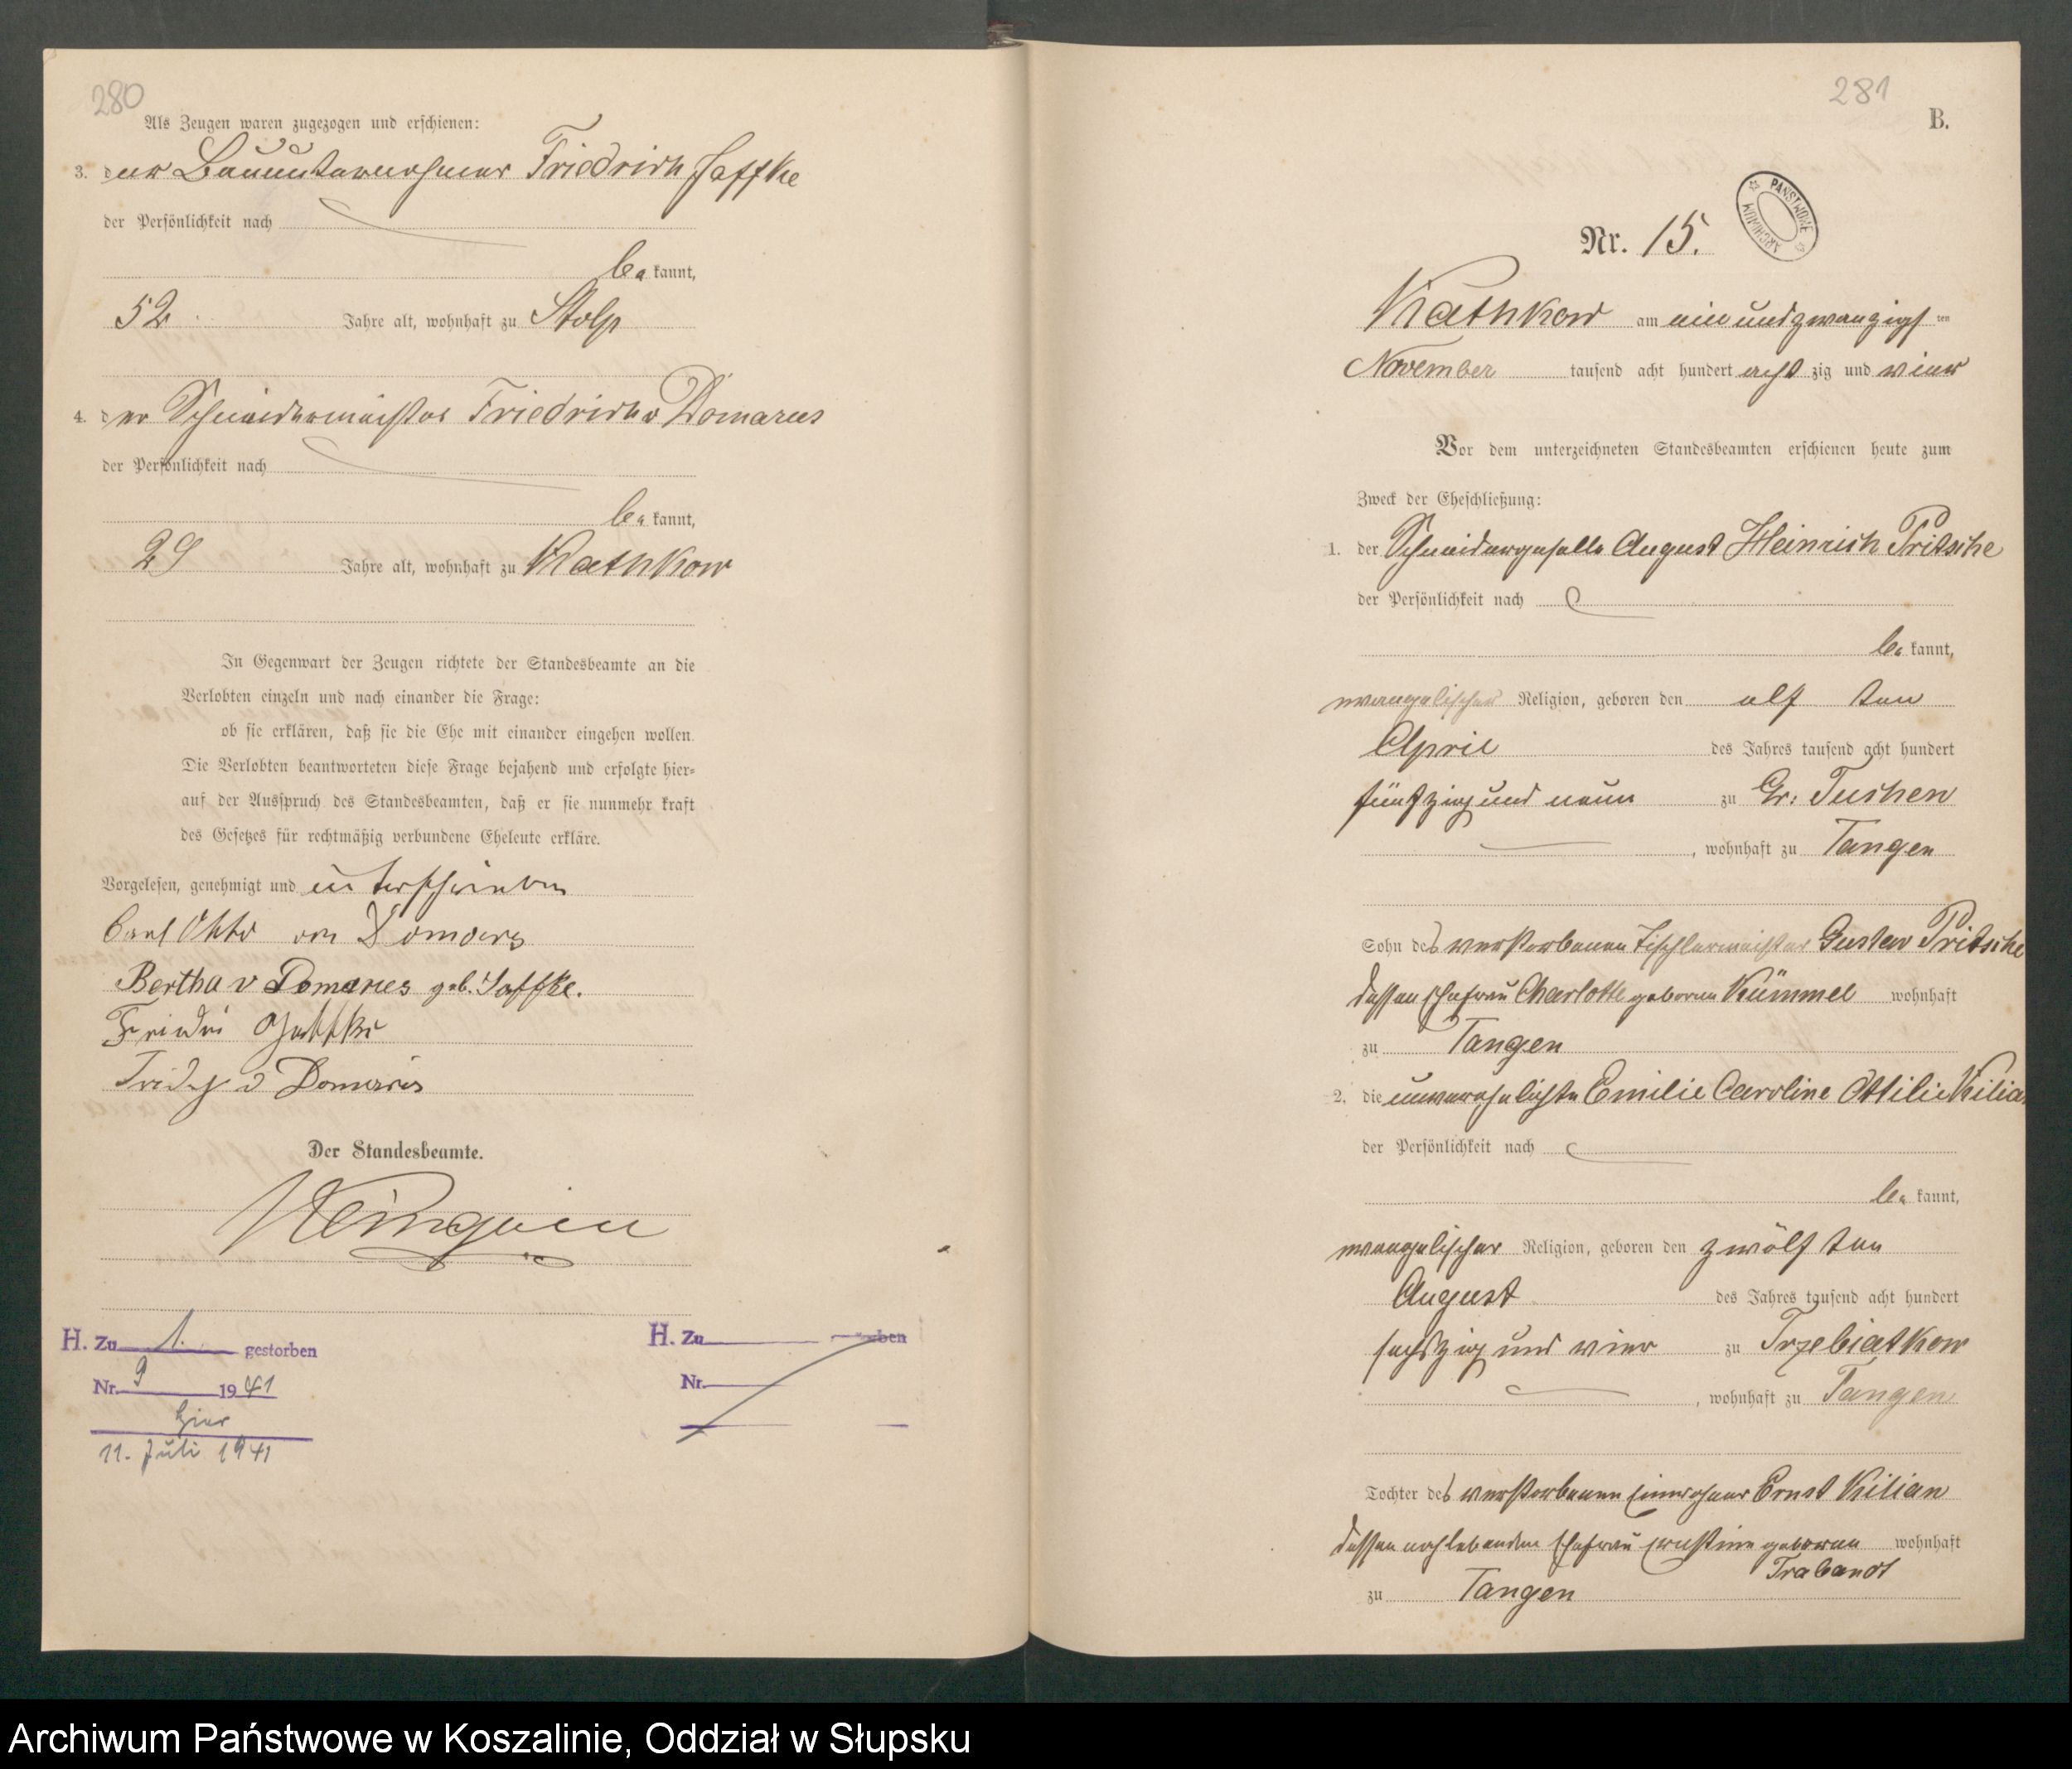 280
Als Zeugen waren zugezogen und erschienen:
3. der Bauunternehmer Friedrich Jaffke
der Persönlichkeit nach
be kannt,
52 Jahre alt, wohnhaft zu Stolp
4. der Schneidermeister Friedrich v Domarus
der Persönlichkeit nach
be kannt,
29 Jahre alt, wohnhaft zu Kathkow
In Gegenwart der Zeugen richtete der Standesbeamte an die
Verlobten einzeln und nach einander die Frage:
ob sie erklären, daß sie die Ehe mit einander eingehen wollen.
Die Verlobten beantworteten diese Frage bejahend und erfolgte hier-
auf der Ausspruch des Standesbeamten, daß er sie nunmehr kraft
des Gesetzes für rechtmäßig verbundene Eheleute erkläre.
Vorgelesen, genehmigt und unterschrieben
Carl Otto von Domarus
Bertha v Domarus geb. Jaffke.
Friedri Jaffke
v Domarus
Der Standesbeamte.
H. Zu 1. gestorben
Nr. 9 1941
hier
11. Juli 1941
H. Zu ben
Nr.
281
B.
PAŃSTWOWE ARCHIWUM
Nr. 15.
Kathkow am ein und zwanzigsten
November tausend acht hundert acht zig und vier
Vor dem unterzeichneten Standesbeamten erschienen heute zum
Zweck der Eheschließung:
1. der Schneidergeselle August Heinrich Pritsche
der Persönlichkeit nach
be kannt,
evangelischer Religion, geboren den elf ten
April des Jahres tausend acht hundert
fünfzig und neun zu Gr: Tuchen
, wohnhaft zu Tangen
Sohn des verstorbenen Tischlermeister Gustav Pritsche
dessen Ehefrau Charlotte geborene Kümmel wohnhaft
zu Tangen
2. die unverehelichte Emilie Caroline Ottilie Kilian
der Persönlichkeit nach
be kannt,
evangelischer Religion, geboren den zwölf ten
August des Jahres tausend acht hundert
sechszig und vier zu Trzebiatkow
, wohnhaft zu Tangen
Tochter des verstorbenen Einwohner Ernst Kilian
dessen noch lebenden Ehefrau Ernstine geborene wohnhaft
Trabandt
zu Tangen
Archiwum Państwowe w Koszalinie, Oddział w Słupsku